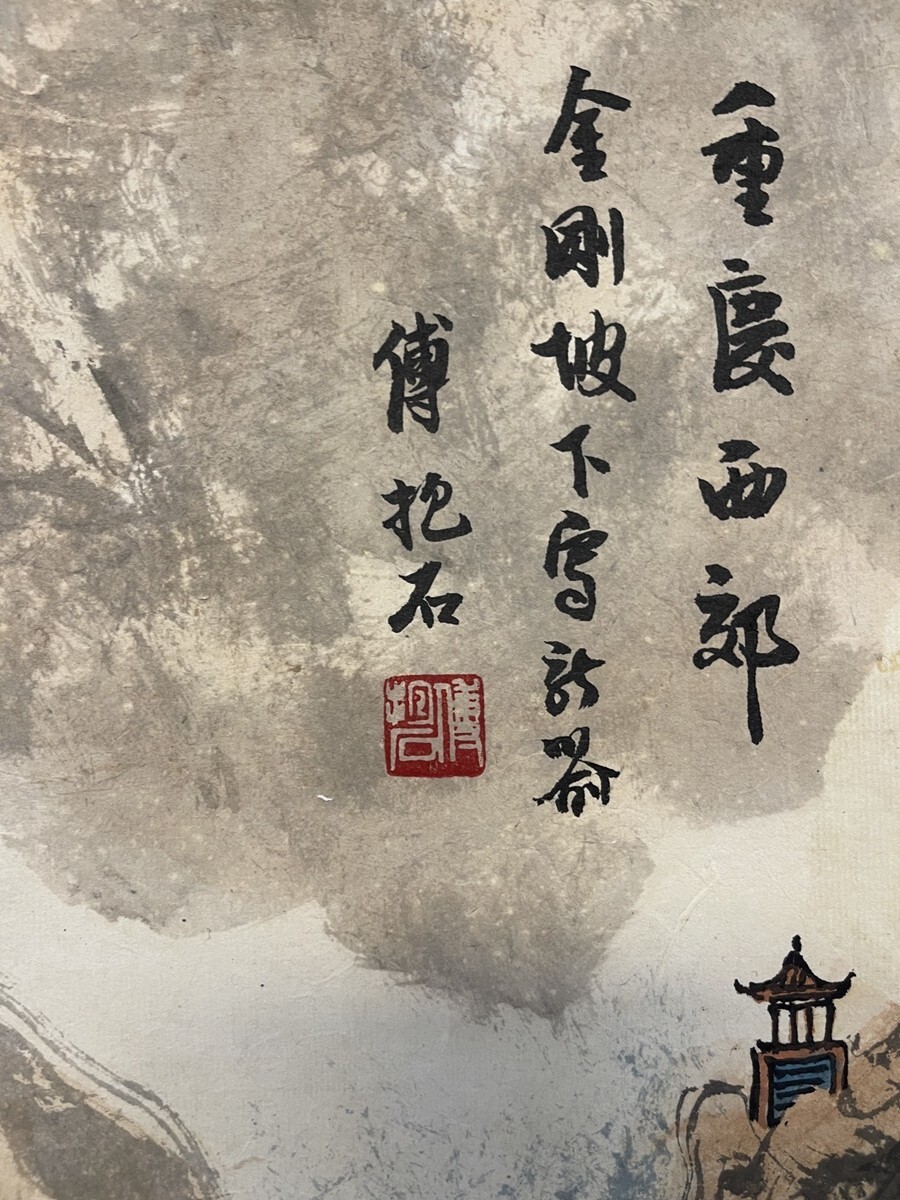 重慶西郊
金剛坡下寫
傅抱石
傅抱石